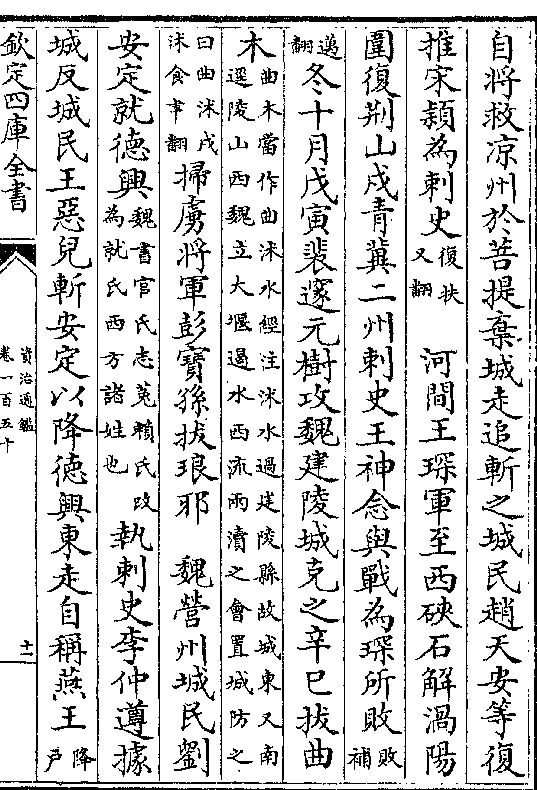 自將救凉州於菩提棄城走追斬之城民趙天安等復
推宋頴為刺史復扶又翻 河間王琛軍至西硤石解渦陽
圍復荆山戍青冀二州刺史王神念與戰為琛所敗敗補
邁翻冬十月戊寅裴邃元樹攻魏建陵城克之辛巳拔曲
木曲木當作曲沭水經注沭水過建陵縣故城東又南逕陵山西魏立大堰遏水西流兩瀆之會置城防之
曰曲沭戍沭食聿翻掃虜將軍彭寶孫拔琅邪 魏營州城民劉
安定就德興魏書官氏志菟賴氏改為就氏西方諸姓也執刺史李仲遵據
城反城民王惡兒斬安定以降德興東走自稱燕王降戶
欽定四庫全書
資治通鑑
卷一百五十
十一